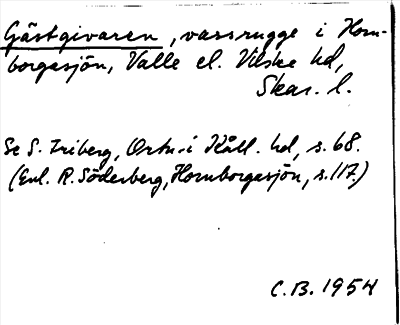 Gästgivaren, vassrugge i Horn-
borgasjön, Valle el. Vilske hd,
Skar. l.
Se S. Friberg, Ortn. i Kåll. hd, s. 68.
(Enl. R. Söderberg, Hornborgasjön, s. 117.)
C.B. 1954